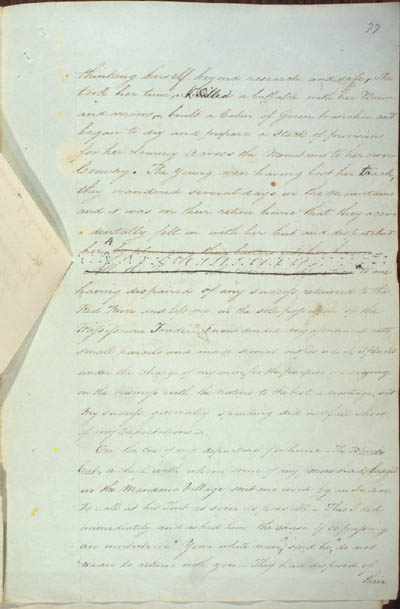 77
thinking herself beyond research and safe, She
took her time, killed a buffaloe with her Bow
and arrows, built a Cabin of Green branches and
began to dry and prepare a stock of provisions
for her Journey across the Mountains to her own
Country. The Young men having lost her track,
they wandered several days in the Mountains
and it was on their return home that they accu
dentally fell in with her hut and dispatched
her
having dispaired of any success returned to the
Red River and left me in the sole possession of the
Missisourie Trade. I now divided my into
small parcels and made several outfits
under the charge of my men, for the purpose of carrying
on the business with the natives to the best advantage, and
my success generally speaking did not fall short
of my expectations.
On the eve of my departure for home The Black
Cat, a chief with whom some of my men had lodged
in the Mandane Village, sent me word by an Indian
to call at his tent as soon as possible This I did
immediately and asked him the cause of so pressing
an invitation "Your white men, said he, do not
mean to return with you They have disposed of
their